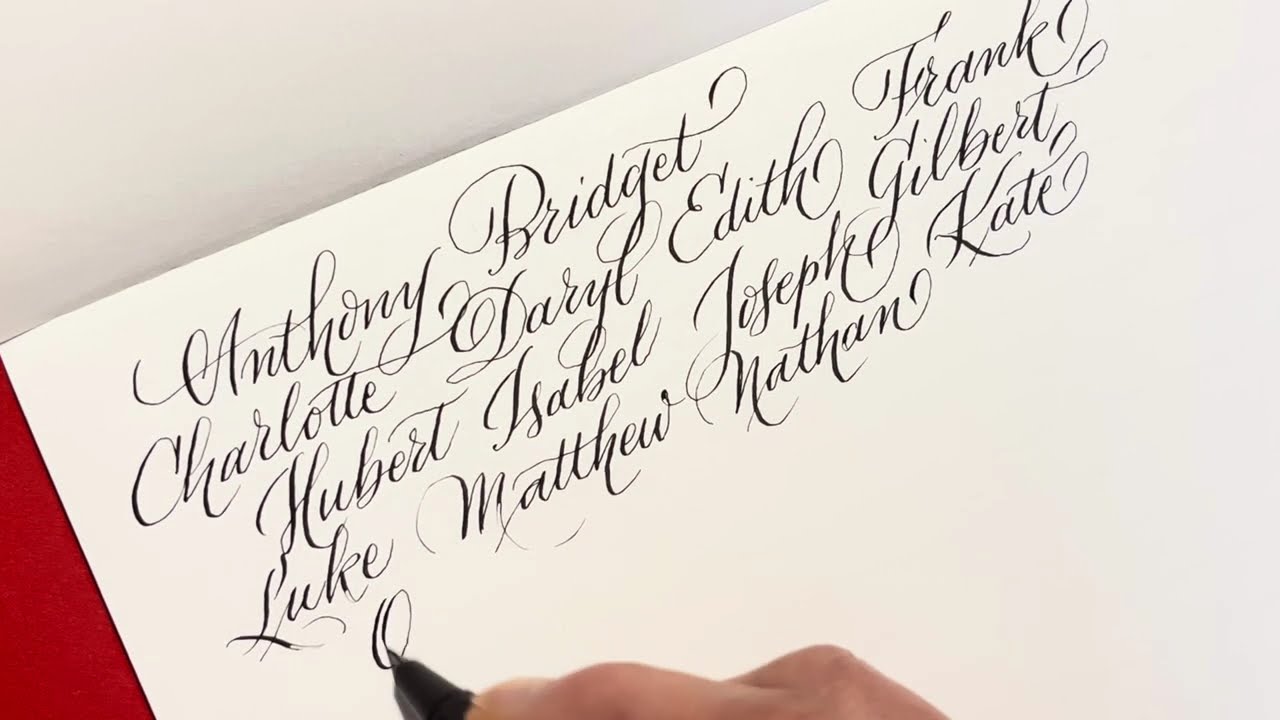 Anthony Bridget Frank
Charlotte Daryl Edith Gilbert
Hubert Isabel Joseph Kate
Luke Matthew Nathan
O